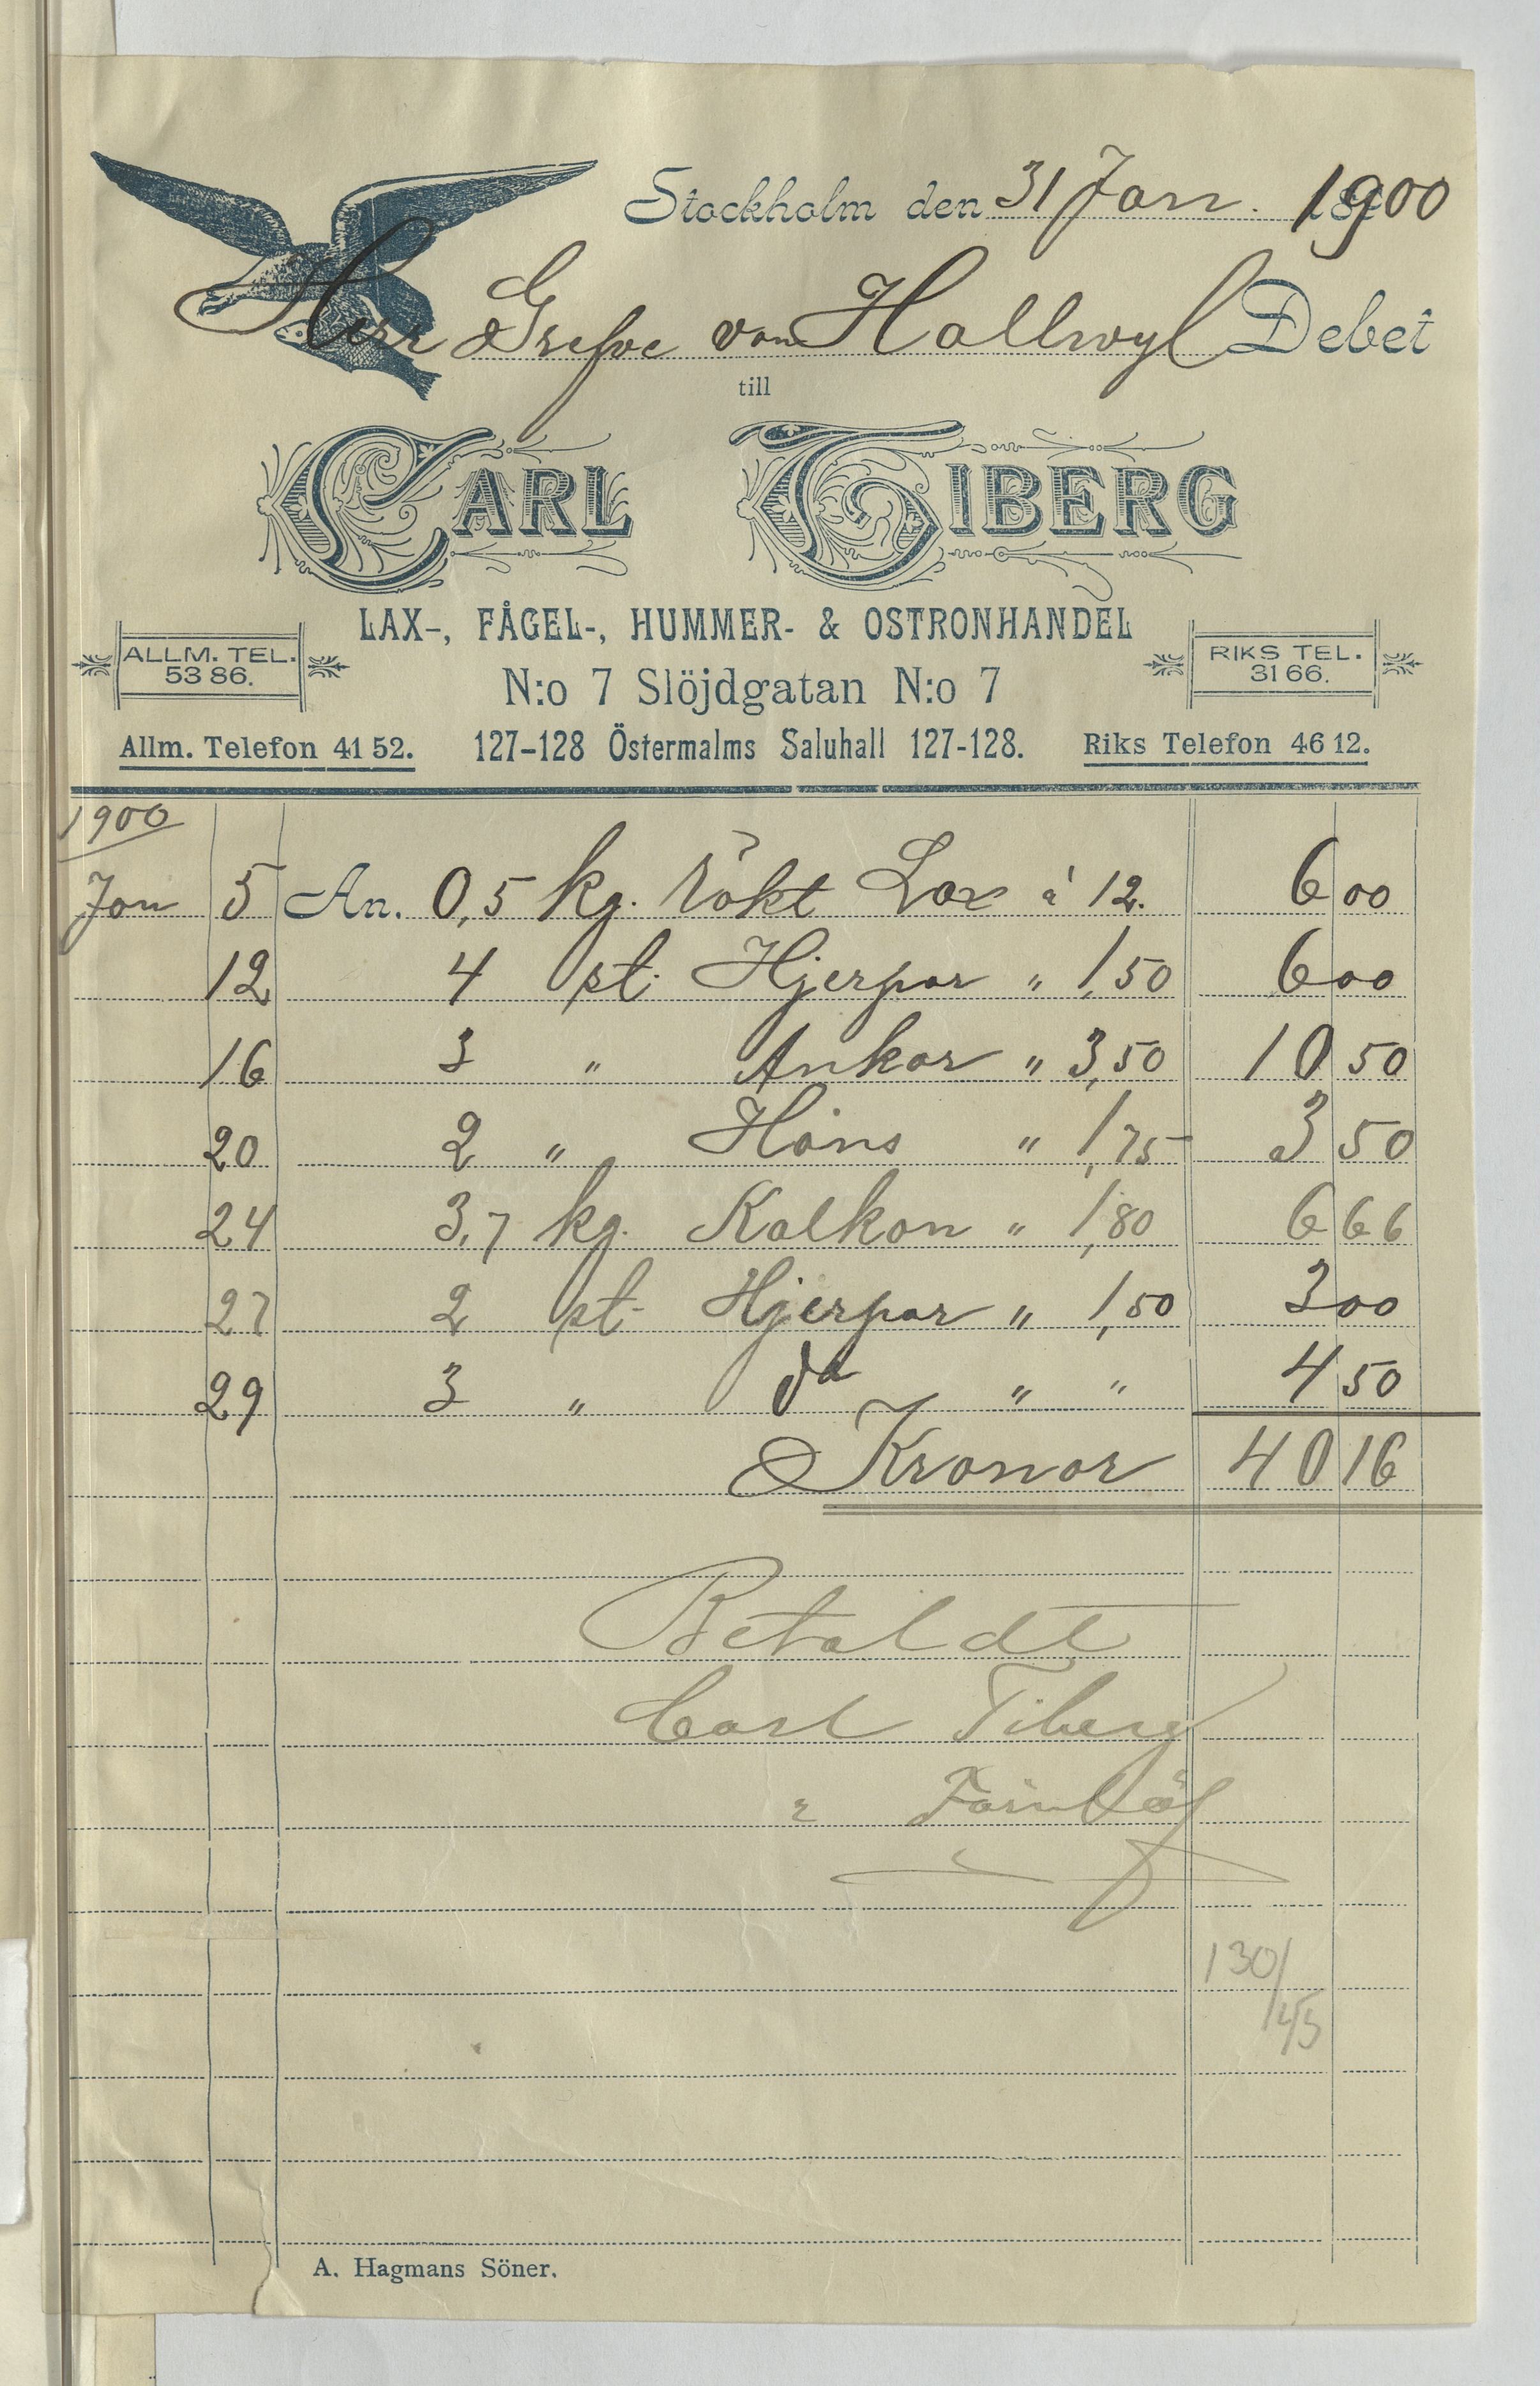 Stockholm den 31 Jan. 1900
Herr Grefve von Hallwyl Debet
till
CARL TIBERG
LAX-, FÅGEL-, HUMMER- & OSTRONHANDEL
ALLM. TEL. 53 86.
N:o 7 Slöjdgatan N:o 7
RIKS TEL. 31 66.
Allm. Telefon 41 52. 127-128 Östermalms Saluhall 127-128. Riks Telefon 46 12.
1900
Jan 5 An. 0,5 kg. rökt Lax à 12. 6 00
12 4 st. Hjerpar " 1,50 6 00
16 3 " Ankor " 3,50 10 50
20 2 " Höns " 1,75 3 50
24 3,7 kg. Kalkon " 1,80 6 66
27 2 st. Hjerpar " 1,50 3 00
29 3 " do " " 4 50
Kronor 40 16
Betaldt
Carl Tiberg
130/
A. Hagmans Söner.